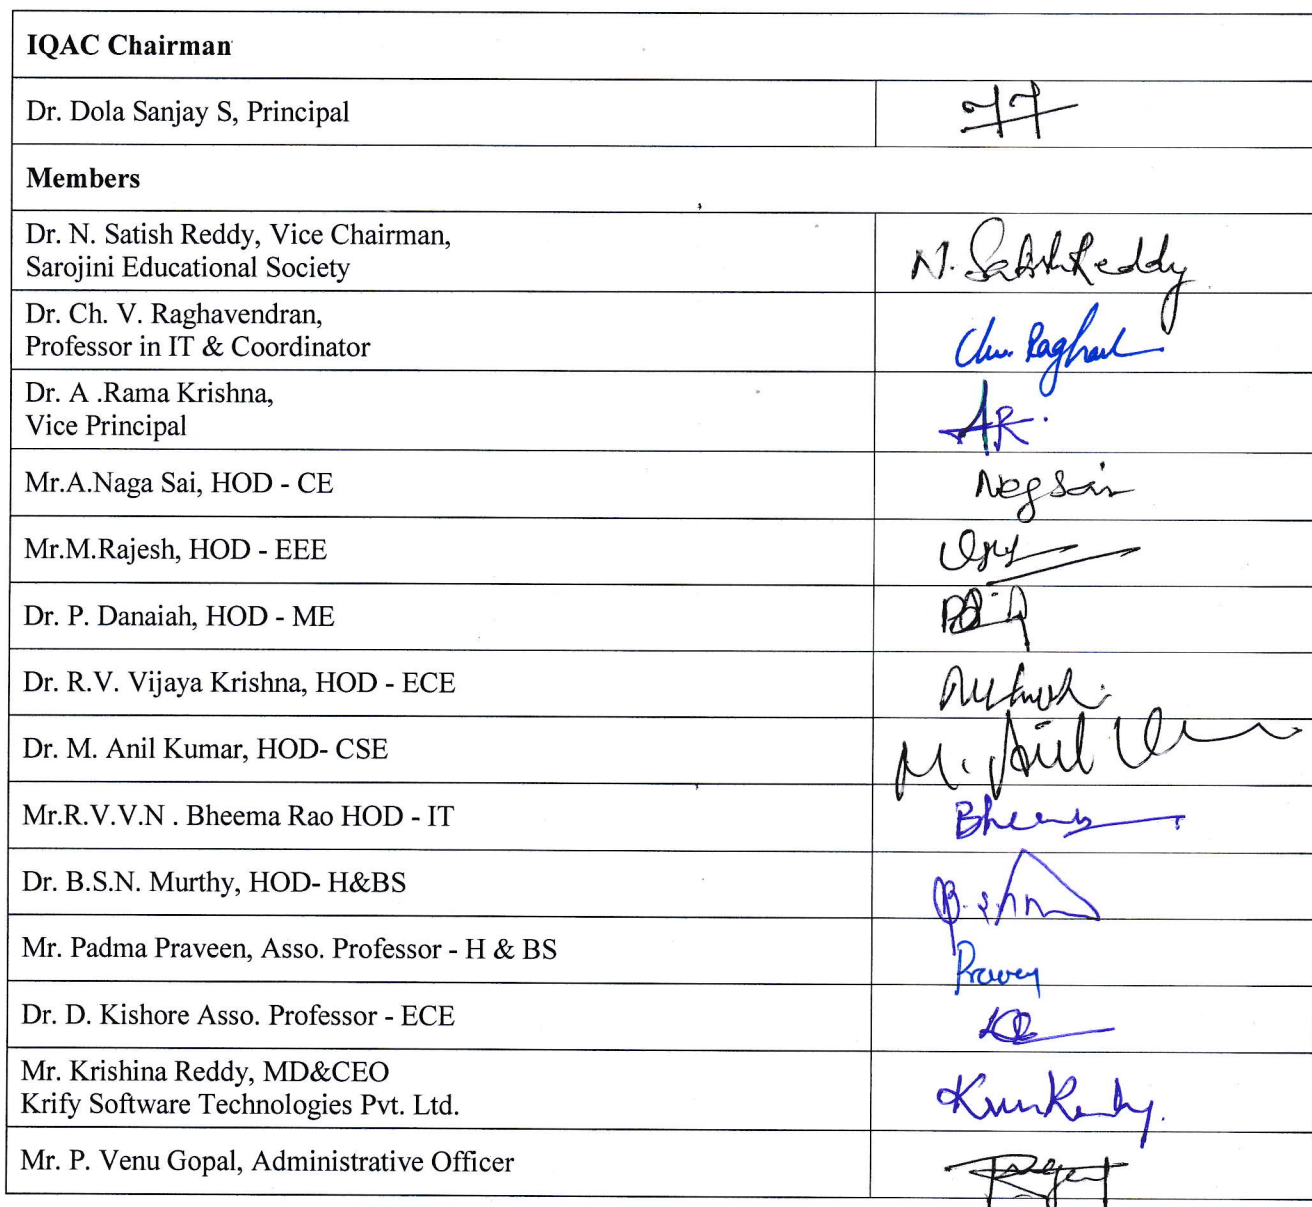 IQAC Chairman
Dr. Dola Sanjay S, Principal
Members
Dr. N. Satish Reddy, Vice Chairman,
Sarojini Educational Society
N. Satish Reddy
Dr. Ch. V. Raghavendran,
Professor in IT & Coordinator
Dr. A .Rama Krishna,
Vice Principal
AR.
Mr.A.Naga Sai, HOD - CE
Nag Sai
Mr.M.Rajesh, HOD - EEE
Dr. P. Danaiah, HOD - ME
Dr. R.V. Vijaya Krishna, HOD - ECE
Dr. M. Anil Kumar, HOD- CSE
M. Anil
Mr.R.V.V.N . Bheema Rao HOD - IT
Dr. B.S.N. Murthy, HOD- H&BS
Mr. Padma Praveen, Asso. Professor - H & BS
Dr. D. Kishore Asso. Professor - ECE
Mr. Krishina Reddy, MD&CEO
Krify Software Technologies Pvt. Ltd.
Mr. P. Venu Gopal, Administrative Officer